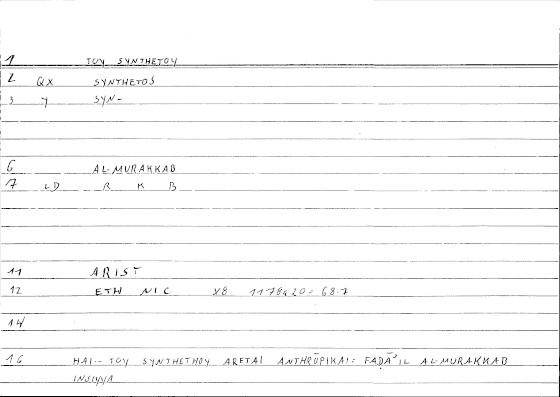 1 TOY SYNTHETOY
2 QX SYNTHETOS
3 7 SYN-
6 AL-MURAKKAB
7 LD R K B
11 ARIST
12 ETH NIC X8 1178A20 = 68.7
14
16 HAI-- TOY SYNTHETHOY ARETAI ANTHRŌPIKAI: FAḌĀ'IL AL-MURAKKAB
INSIYYA